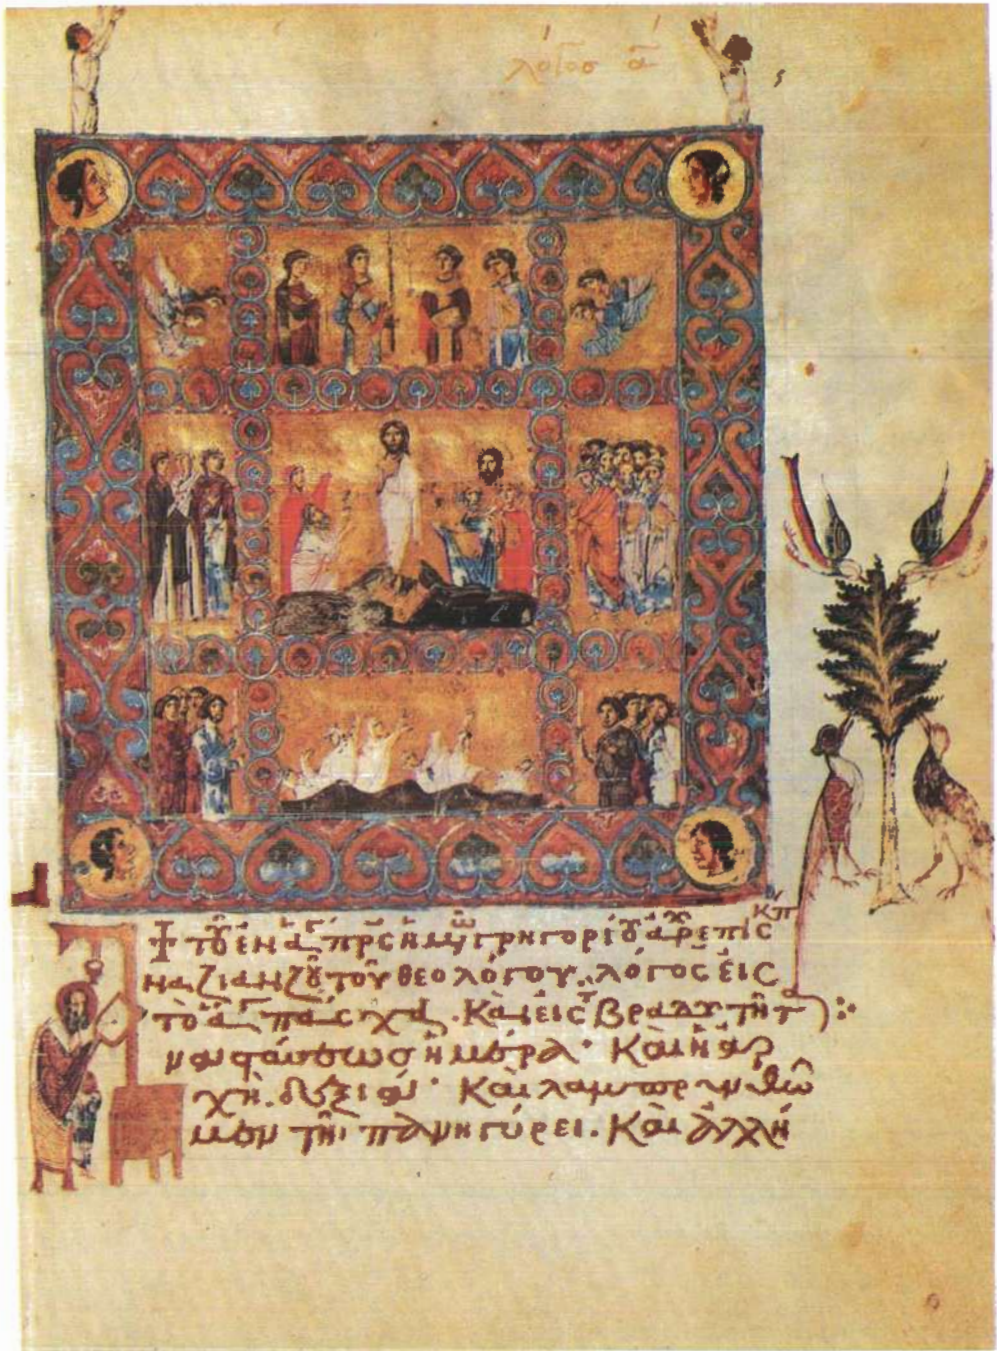 λόγος α
☩ τοῦ ἐν ἁγ πρς ἡμῶ γρηγορίου ἀρχεπισκπ
ναζιανζοῦ τοῦ θεολόγου. λόγος εἰς
τὸ ἅγ πάσχα. Καὶ εἰς τ βραδυτῆτα :·
ναστάσεως ἡμέρα· Καὶ ἡ ἀρ
χὴ. δεξιά· Καὶ λαμπρυνθῶ
μεν τῆι πανηγύρει. Καὶ ἀλλή